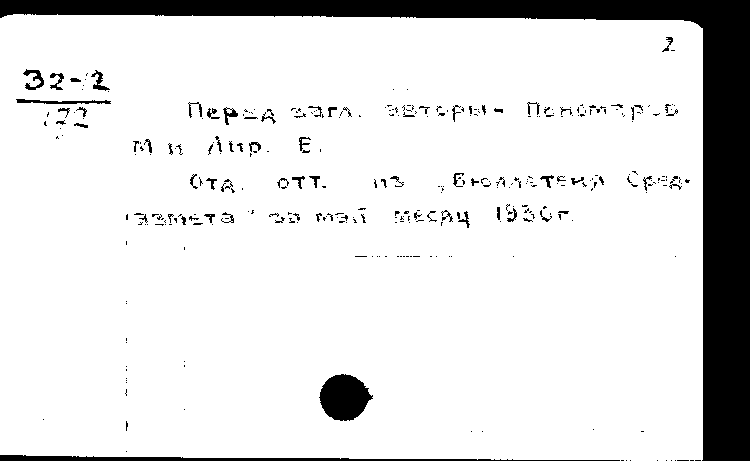 2
32-12
172
Перед загл. авторы - Пономарев
М и Лир. Е.
Отд. отт. из „Бюллетеня Сред-
азмета" за май месяц 1930г.